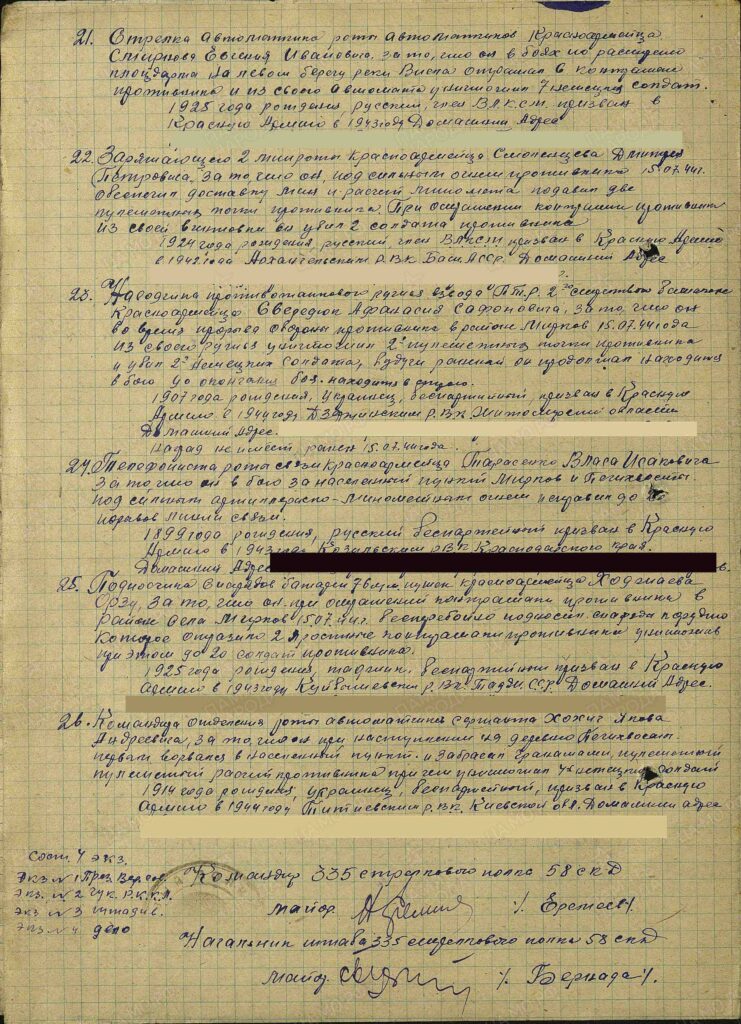 21. Стрелка автоматчика роты автоматчиков Красноармейца
Смирнова Евгения Ивановича, за то, что он в боях по расширению
плацдарма на левом берегу реки Висла отражая контратаки
противника и из своего автомата уничтожил 7 немецких солдат.
1925 года рождения, русский, член ВЛКСМ, призван в
Красную Армию в 1943 году Домашний Адрес
22. Заряжающего 2 минроты Красноармейца Смоленцева Дмитрия
Петровича, за то, что он, под сильным огнем противника 15.07.44г.
обеспечил доставку мин и расчет миномета подавил две
пулеметных точки противника. При отражении контратаки противника
из своей винтовки он убил 2 солдата противника
1924 года рождения, русский, член ВЛКСМ, призван в Красную Армию
в 1942 году Архангельским РВК Баш АССР. Домашний Адрес
23. Наводчика противотанкового ружья взвода "П.Т.Р." 2го стрелкового батальона
Красноармейца Сафоновича, за то, что он
во время прорыва обороны противника в районе Мирков 15.07.44 года
из своего ружья уничтожил 2е пулеметных точки противника
и убил 2х немецких солдата, будучи раненым он продолжал находится
в бою до окончания боя.
1907 года рождения, украинец, беспартийный, призван в Красную
Армию в 1944 году Дзержинским Р.В.К. Житомирской области
Домашний Адрес.
Наград не имеет, ранен 15.07.44 года.
24. Телефониста роты связи Красноармейца Тарасенко Власа Исаковича
за то, что он в бою за населенный пункт Мирков и
под сильным артиллерийско-минометным огнем исправил до
порывов линии связи.
1899 года рождения, русский, беспартийный призван в Красную
Армию в 1943 году РВК Краснодарского края.
Домашний Адрес
25. Подносчика снарядов батареи 76 м/м пушек красноармейца Ходжиева
Орзу, за то, что он при отражении контратаки противника в
районе села Мирков 15.07.44г. бесперебойно подносил снаряды к орудию
которое отразило 2 яростные контратаки противника уничтожив
при этом до 20 солдат противника.
1925 года рождения, таджик, беспартийный призван в Красную
Армию в 1943 году Куйбышевским р.в.к. Тадж. ССР. Домашний Адрес.
26. Командира отделения роты автоматчиков сержанта Хохич Якова
Андреевича, за то, что он при наступлении на деревню
первым ворвался в населенный пункт и забросал гранатами пулеметный
расчет противника при чем уничтожил 4х немецких солдат
1914 года рождения, украинец, беспартийный, призван в Красную
Армию в 1944 году Тетиевским р.в.к. Киевской обл. Домашний адрес
Сост. 4 экз.
Экз №1 През. Верх. сов.
Экз. №2 ГУК Р.К.К.А.
Экз №3 штадив.
Экз №4 дело
Командир 335 стрелкового полка 58 скд
майор /Еремеев/
Начальник штаба 335 стрелкового полка 58 скд
майор /Бернада/.